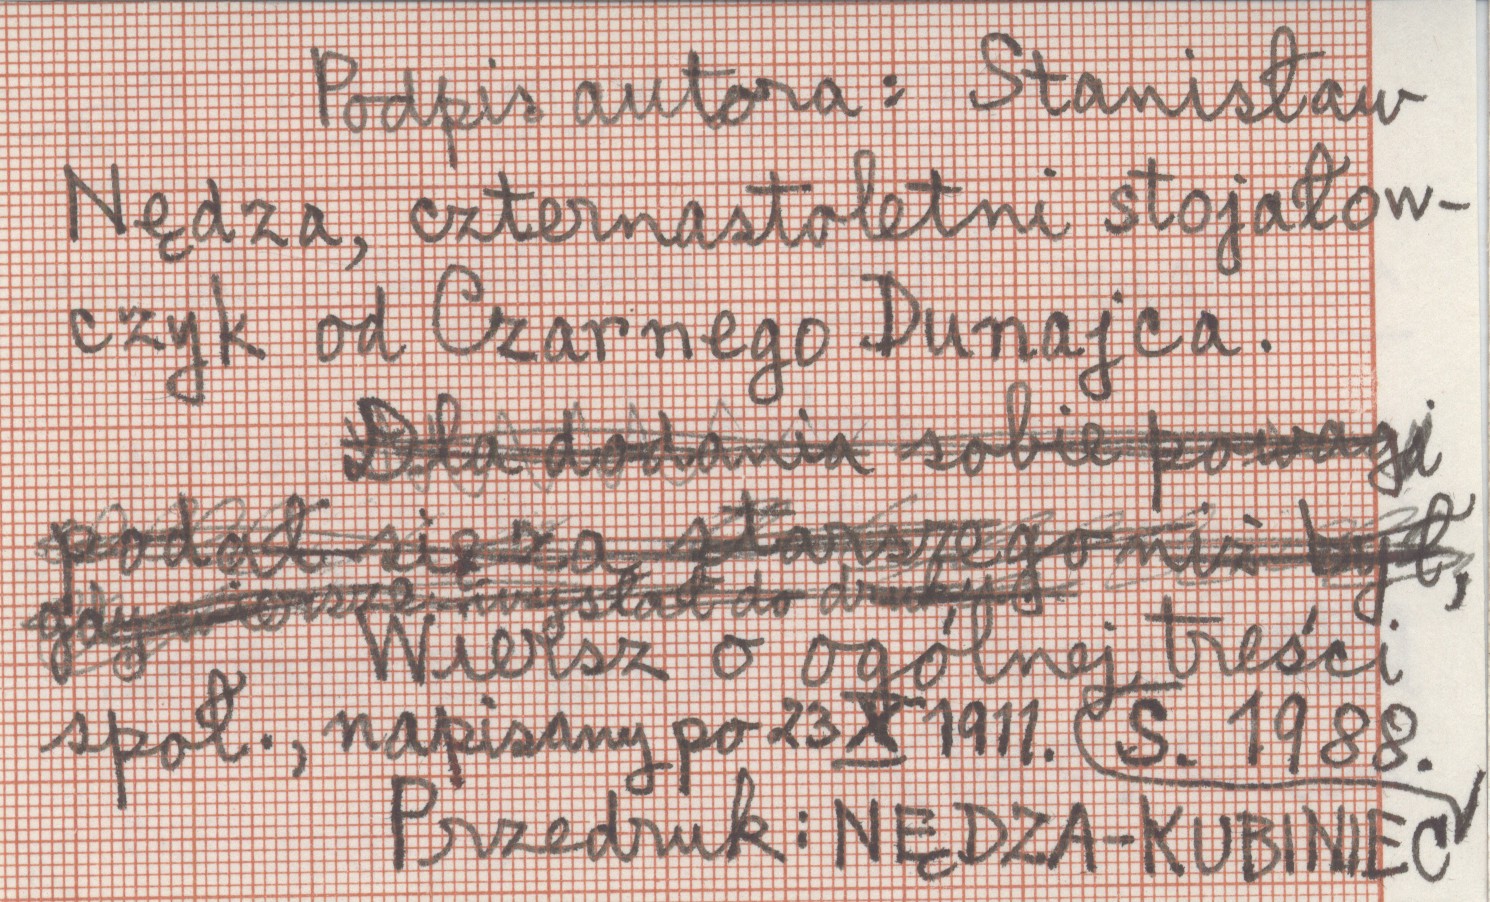 Podpis autora: Stanisław
Nędza, czternastoletni stojałow-
czyk od Czarnego Dunajca.
Dla dodania sobie powagi
podał się za starszego niż był,
gdy wiersze wysłał do druku
Wiersz o ogólnej treści
społ., napisany po 23 X 1911. S. 1988.
Przedruk: NĘDZA-KUBINIEC